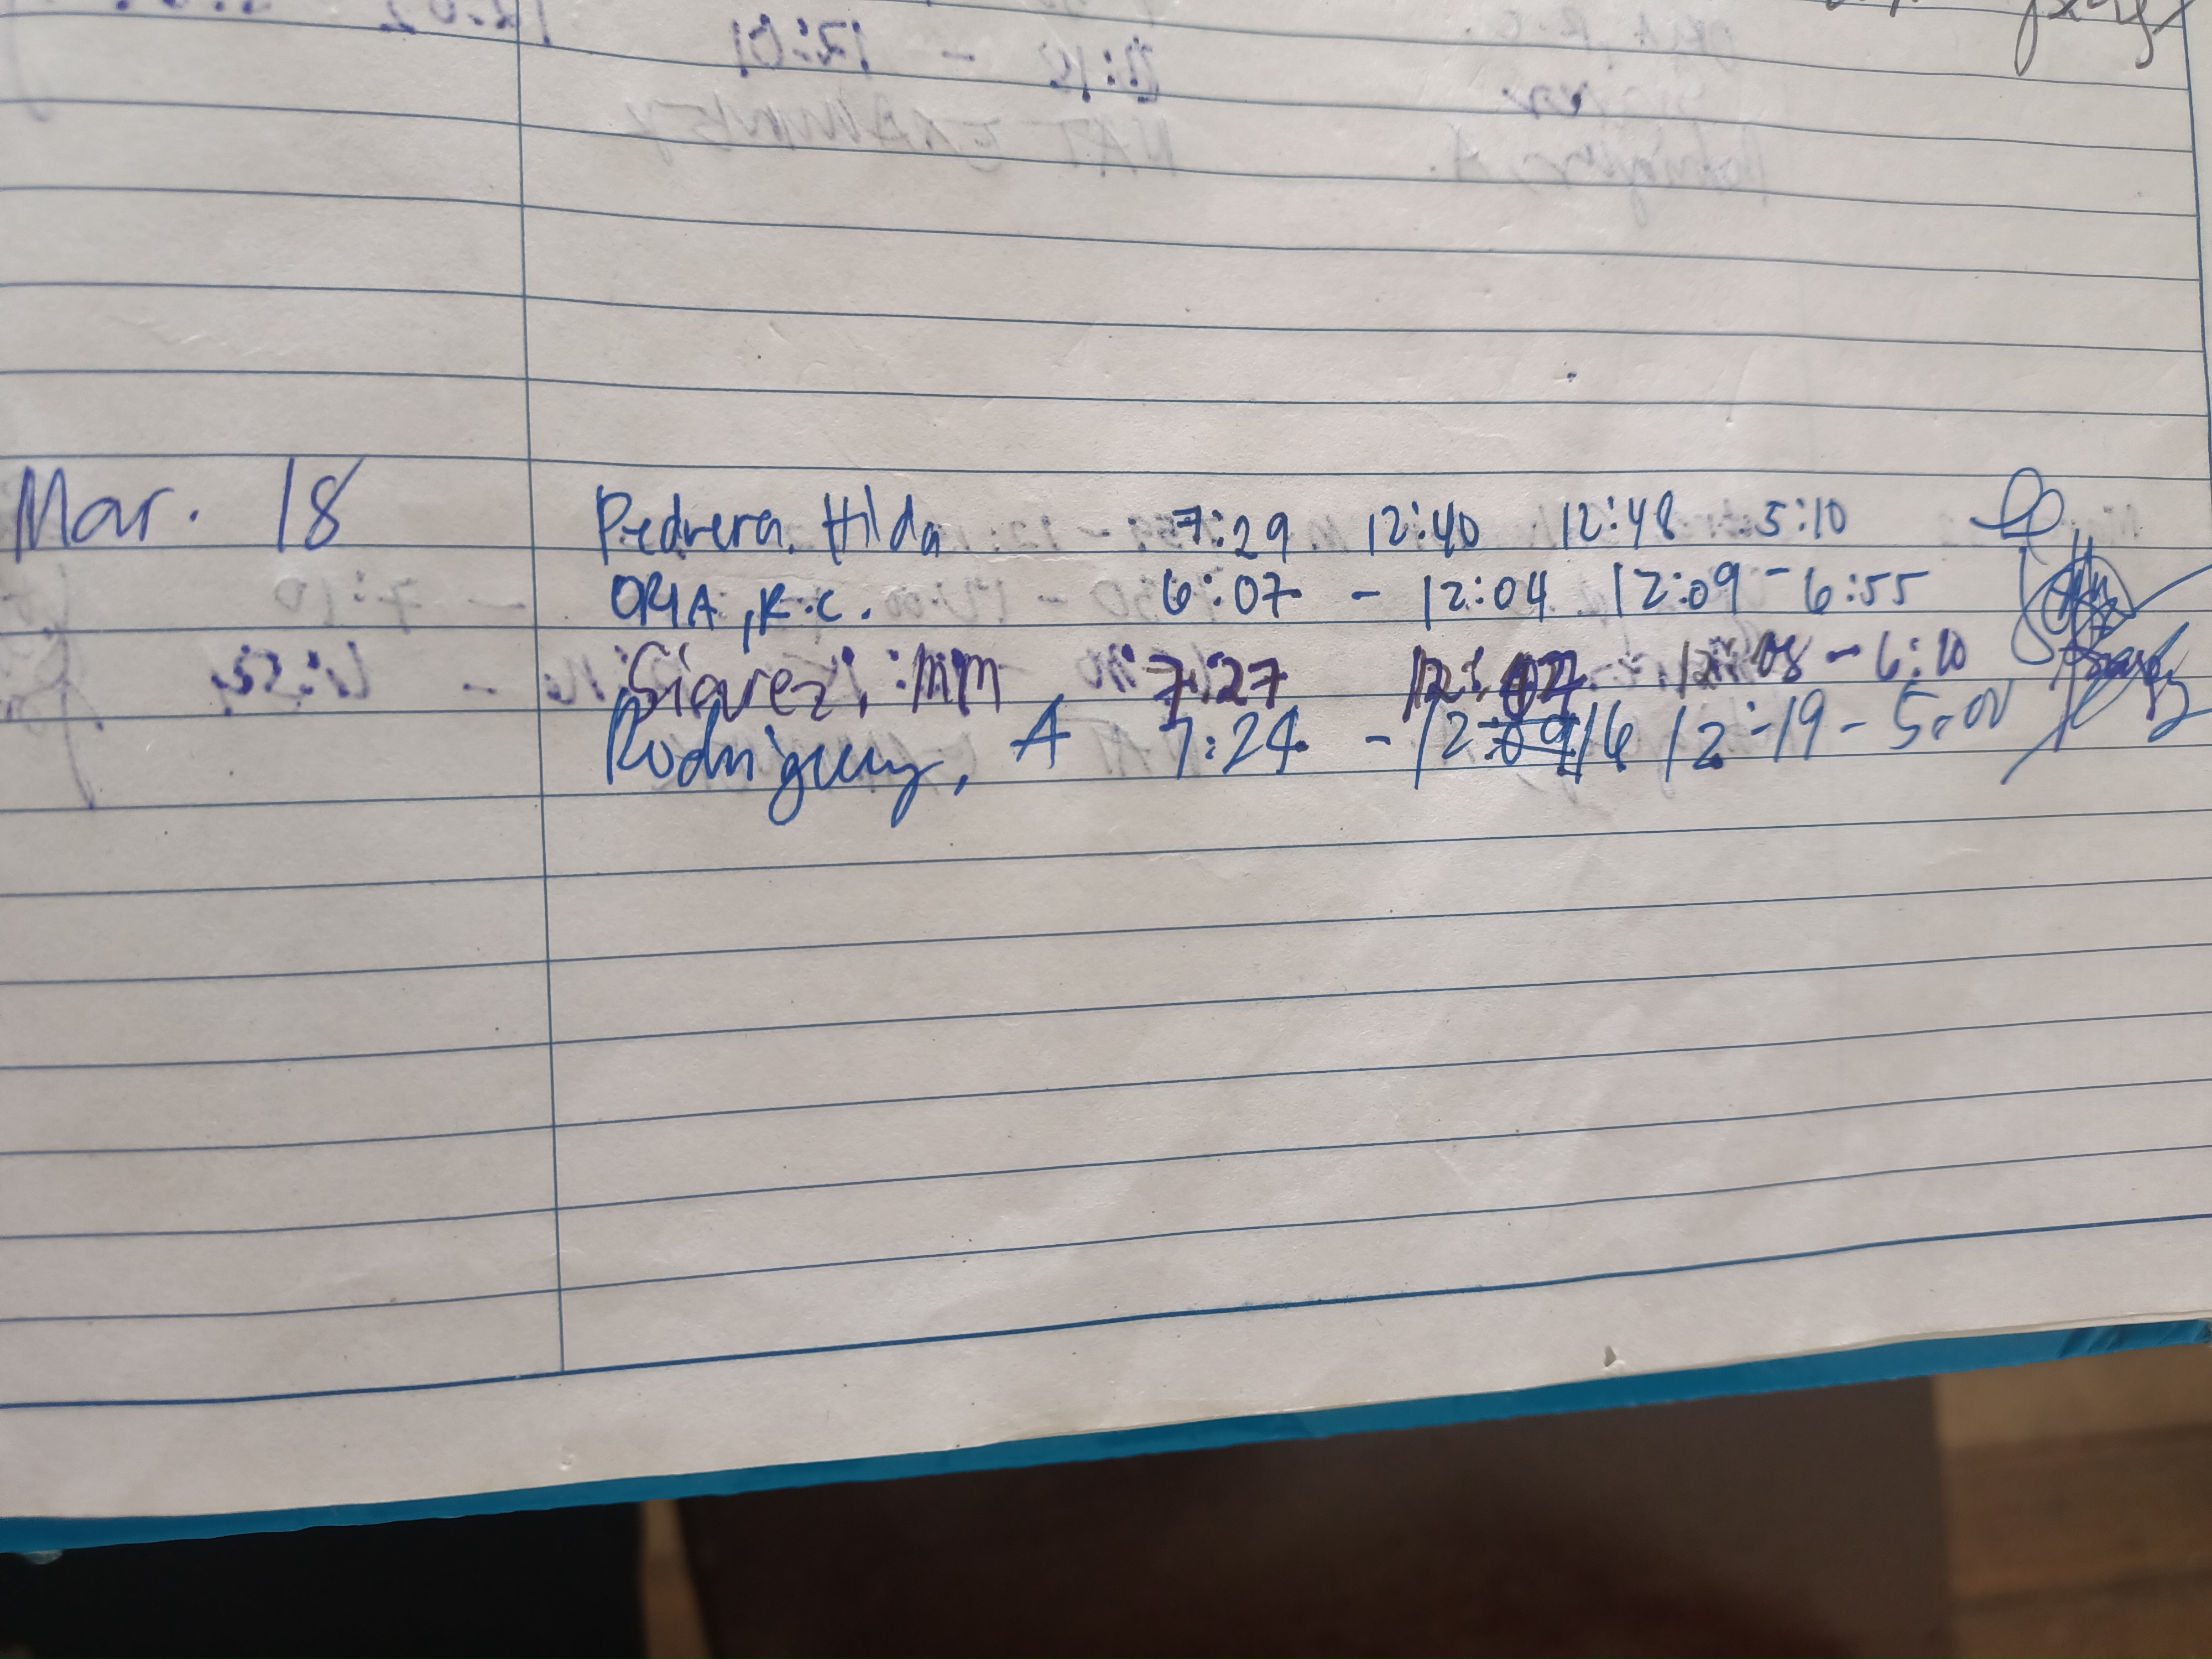 Mar. 18 Pedrera, Hilda 7:29 12:40 12:48 5:10
ORIA, R.C. 6:07 - 12:04 12:09 - 6:55
Siarez, MM 7:27 12:07 12:08 - 6:20
Rodriguez, A 7:24 - 12:16 12:19 - 5:00